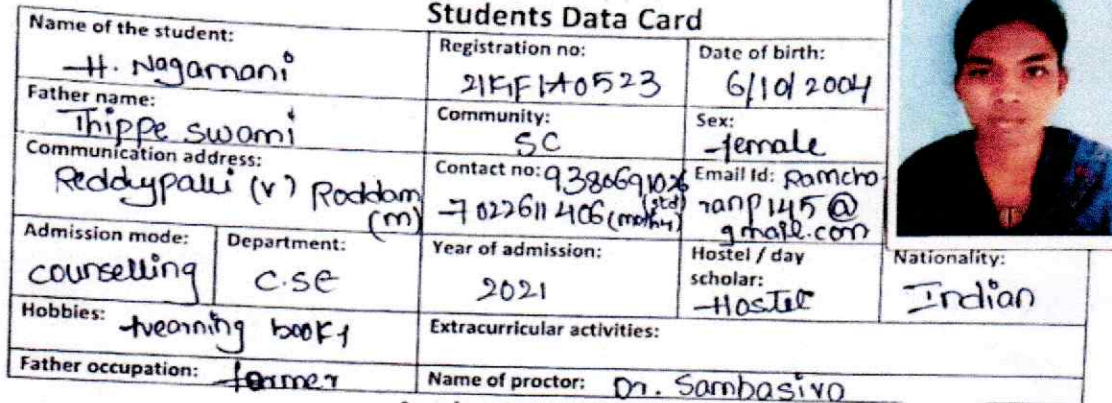 Students Data Card
Name of the student:
H. Nagamani
Registration no:
21KF1A0523
Date of birth:
6/10/2004
Father name:
Thippe swami
Community:
SC
Sex:
female
Communication address:
Reddypalli (v) Roddam
(m)
Contact no: 9380691026
(std)
7022611406 (mothy)
Email Id: Ramcho
ranp145@
gmail.com
Admission mode:
counselling
Department:
C.SE
Year of admission:
2021
Hostel / day
scholar:
Hostel
Nationality:
Indian
Hobbies:
Extracurricular activities:
Father occupation: farmer
Name of proctor: Dr. Sambasiva